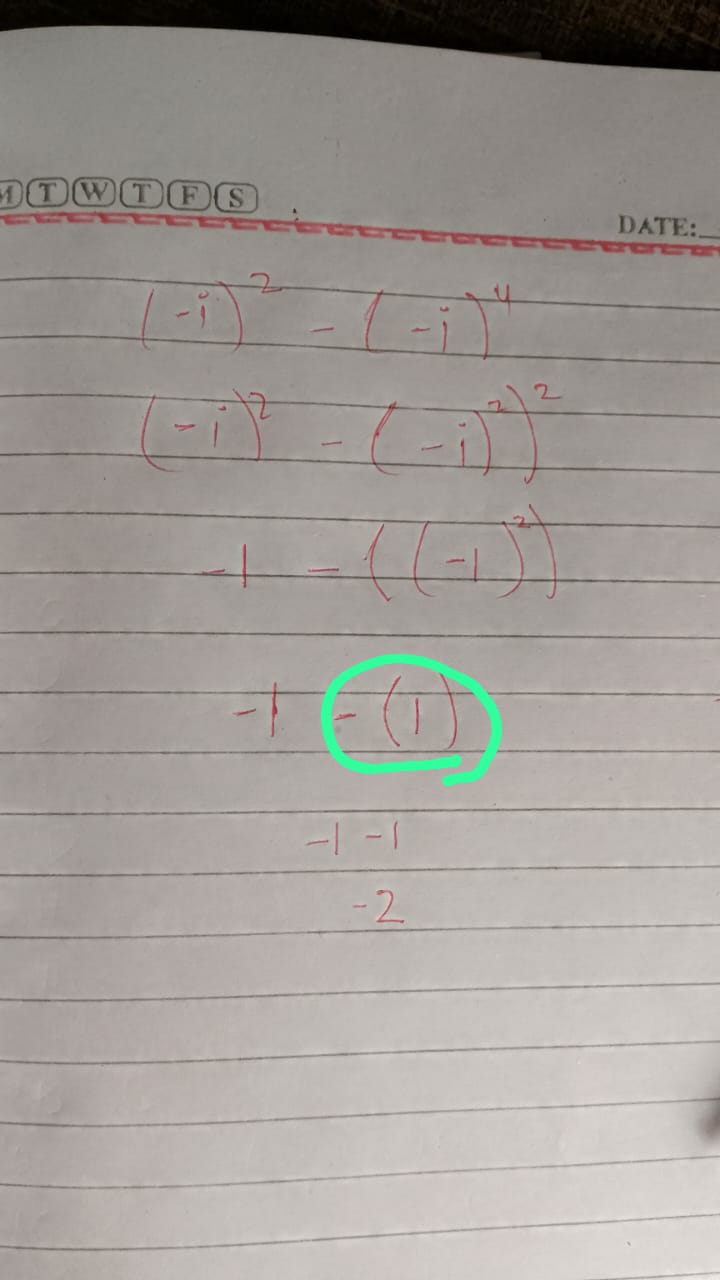 M T W T F S
DATE:
(-i)² - (-i)⁴
(-i)² - (-i)²)²
-1 - ((-1)²)
-1 - (1)
-1 -1
-2